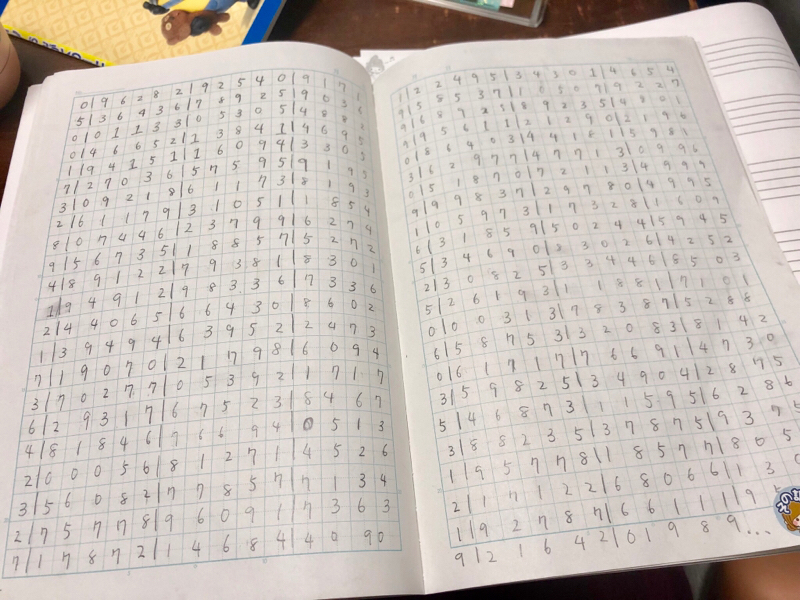 0|9 6 2 8 2|9 2 5 4 0|9 1 7 1
5|3 6 4 3 6|7 8 9 2 5|9 0 3 6
0 0 1 1 3 3|0 5 3 0 5|4 8 8 2
0|4 6 6 5 2|1 3 8 4 1|4 6 9 5
1|9 4 1 5 1|1 6 0 9 4|3 3 0 5
7|2 7 0 3 6|5 7 5 9 5|9 1 9 5
3|0 9 2 1 8|6 1 1 7 3|8 1 9 3
2|6 1 1 7 9|3 1 0 5 1|1 8 5 4
8|0 7 4 4 6|2 3 7 9 9|6 2 7 4
9|5 6 7 3 5|1 8 8 5 7|5 2 7 2
4|8 9 1 2 2|7 9 3 8 1|8 3 0 1
1|9 4 9 1 2|9 8 3 3 6|7 3 3 6
2|4 4 0 6 5|6 6 4 3 0|8 6 0 2
1|3 9 4 9 4|6 3 9 5 2|2 4 7 3
7|1 9 0 7 0|2 1 7 9 8|6 0 9 4
3|7 0 2 7 7|0 5 3 9 2|1 7 1 7
6|2 9 3 1 7|6 7 5 2 3|8 4 6 7
4|8 1 8 4 6|7 6 6 9 4|0 5 1 3
2|0 0 0 5 6|8 1 2 7 1|4 5 2 6
3|5 6 0 8 2|7 7 8 5 7|7 1 3 4
2|7 5 7 7 8|9 6 0 9 1|7 3 6 3
7|1 7 8 7 2|1 4 6 8 4|4 0 9 0
1|2 2 4 9 5|3 4 3 0 1|4 6 5 4
9|5 8 5 3 7|1 0 5 0 7|9 2 2 7
9|6 8 9 2 5|8 9 2 3 5|4 2 0 1
9|9 5 6 1 1|2 1 2 9 0|2 1 9 6
0|8 6 4 0 3|4 4 1 8 1|5 9 8 1
3|6 2 9 7 7|4 7 7 1 3|0 9 9 6
0|5 1 8 7 0|7 2 1 1 3|4 9 9 9
9|9 9 8 3 7|2 9 7 8 0|4 9 9 5
1|0 5 9 7 3|1 7 3 2 8|1 6 0 9
6|3 1 8 5 9|5 0 2 4 4|5 9 4 5
5|3 4 6 9 0|8 3 0 2 6|4 2 5 2
2|3 0 8 2 5|3 3 4 4 6|8 5 0 3
5|2 6 1 9 3|1 1 8 8 1|7 1 0 1
0|0 0 3 1 3|7 8 3 8 7|5 2 8 8
6|5 8 7 5 3|3 2 0 8 3|8 1 4 2
0|6 1 7 1 7|7 6 6 9 1|4 7 3 0
3|5 9 8 2 5|3 4 9 0 4|2 8 7 5
5|4 6 8 7 3|1 1 5 9 5|6 2 8 6
3|8 8 2 3 5|3 7 8 7 5|9 3 7 5
1|9 5 7 7 8|1 8 5 7 7|8 0 5
2|1 7 1 2 2|6 8 0 6 6|1 3 0
1|9 2 7 8 7|6 6 1 1 1|9 5
9|2 1 6 4 2|0 1 9 8 9...